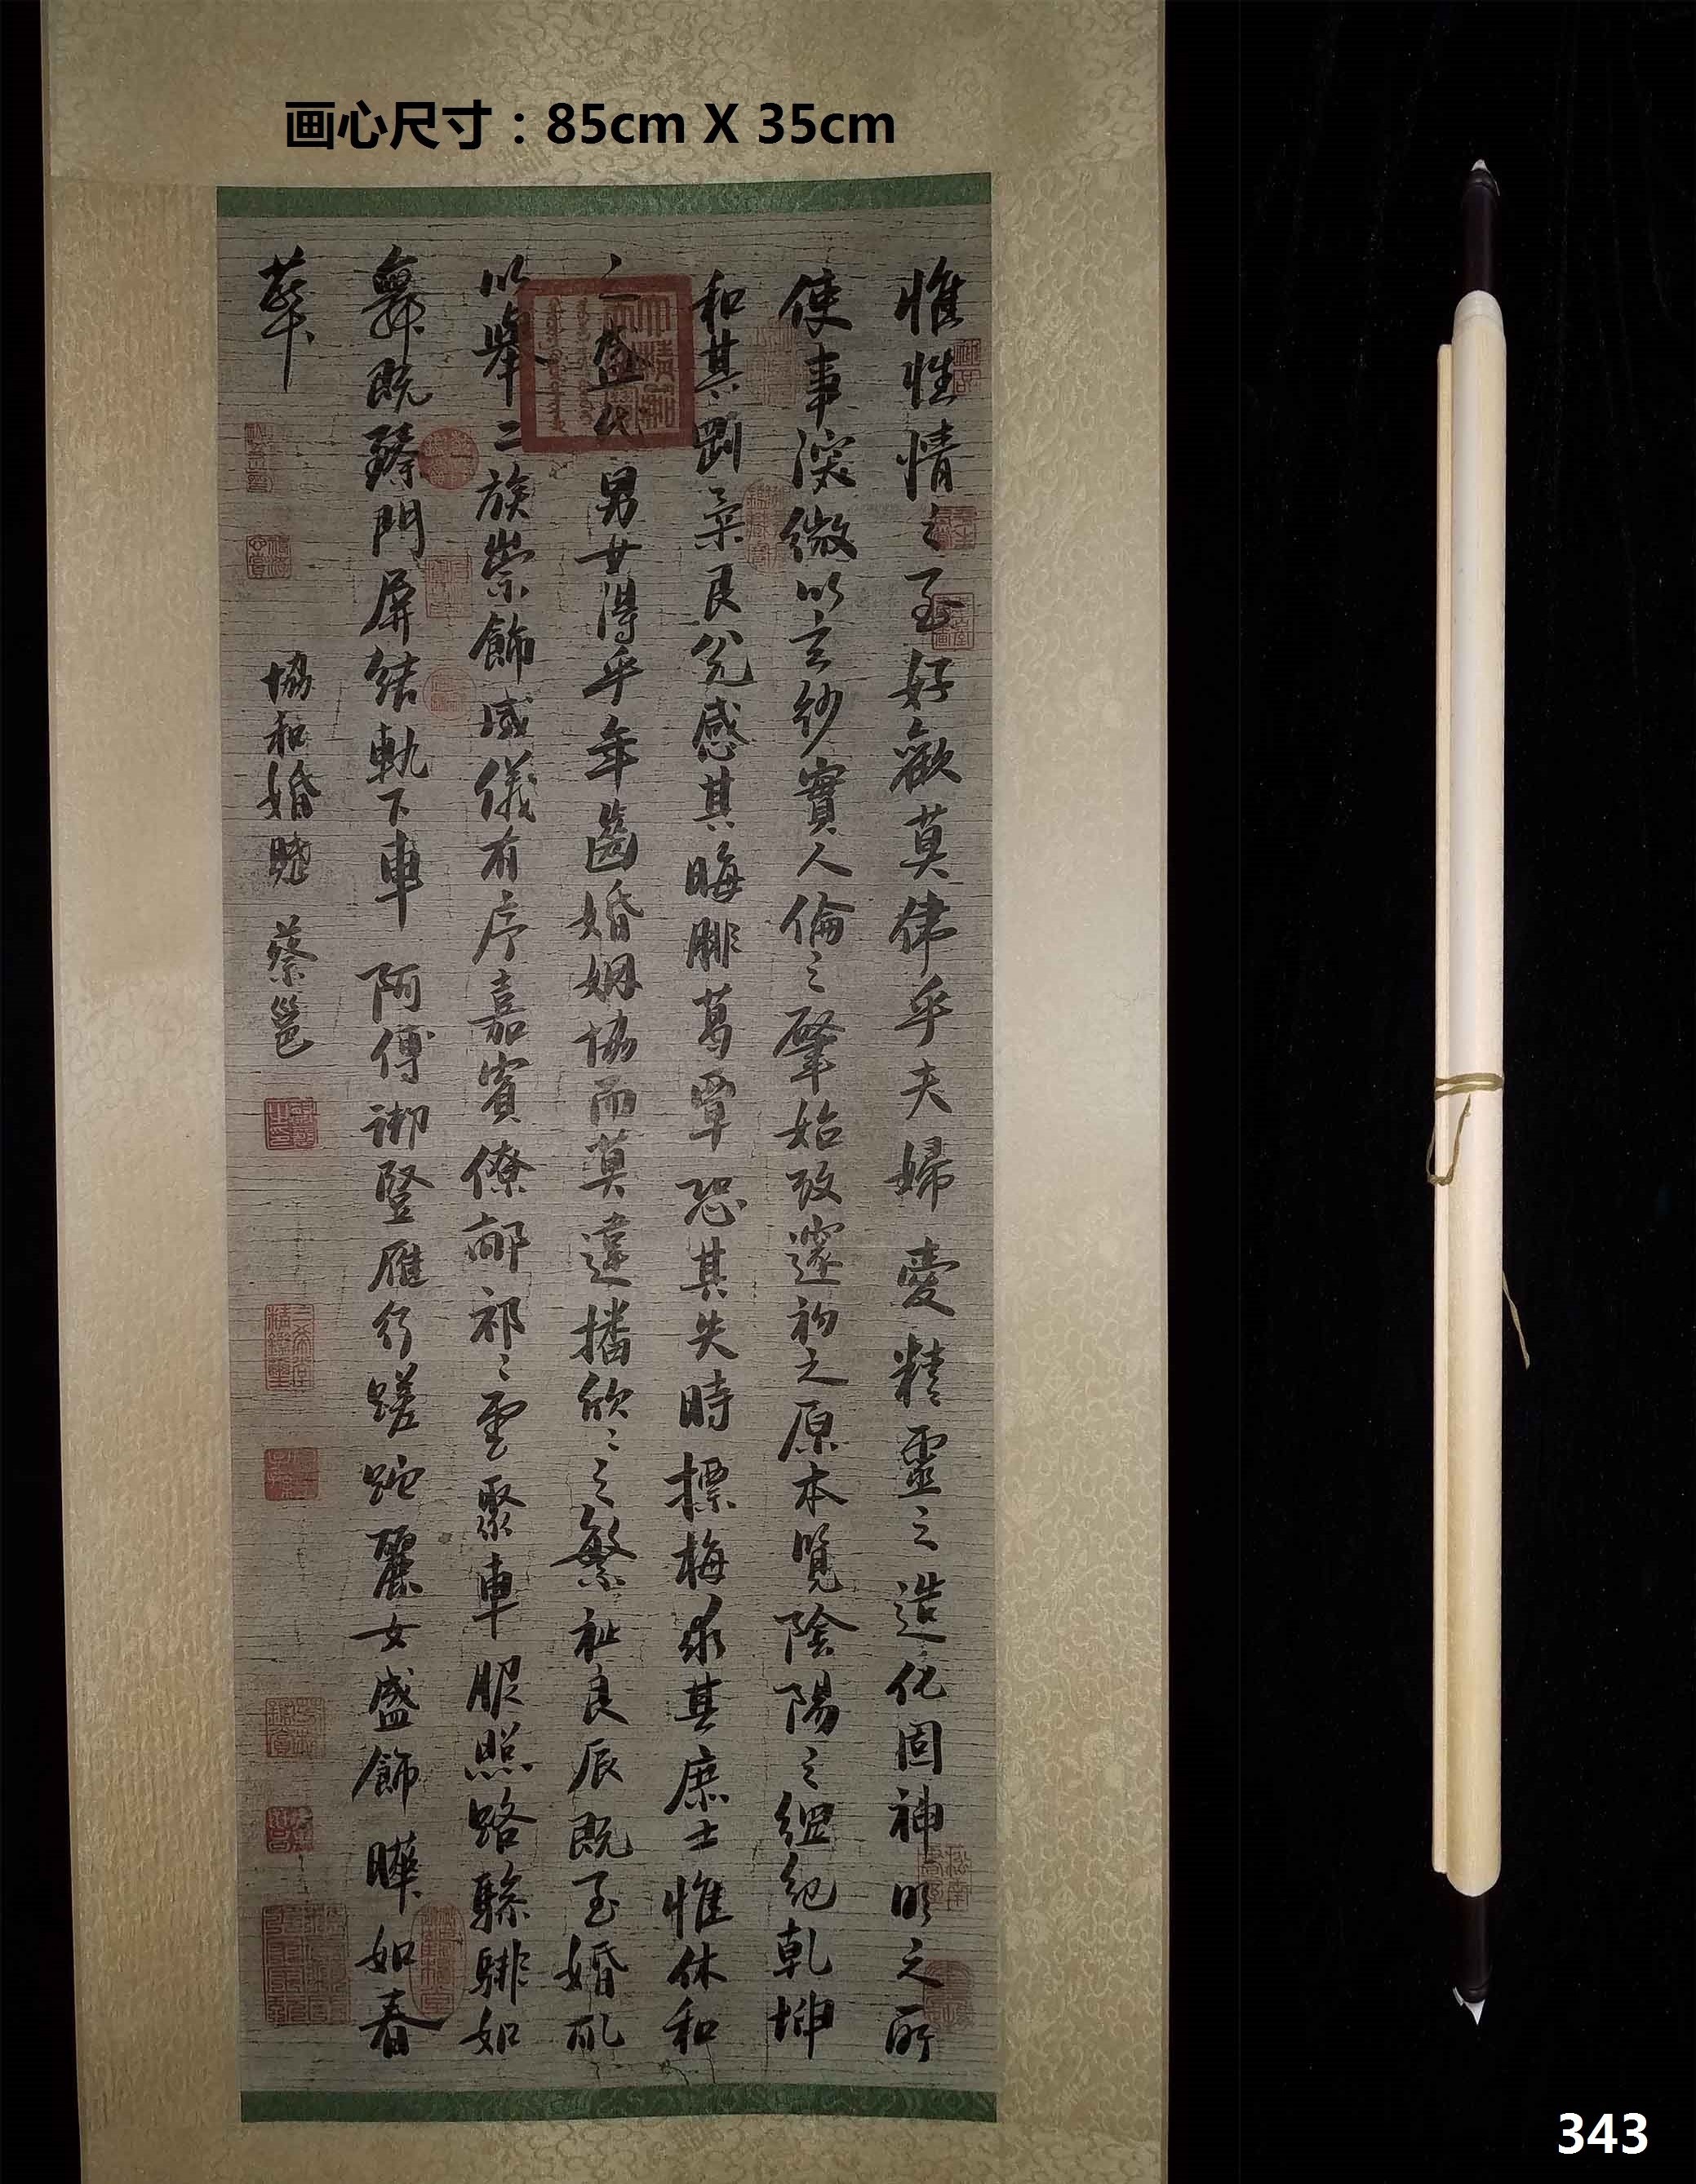 画心尺寸：85cm X 35cm
惟性情之至好歡莫偉乎夫婦愛精靈之造化固神明之所
使事深微以玄妙實人倫之肇始攷邃初之原本覽陰陽之綱紀乾坤
和其剛柔艮兌感其晦腓葛覃恐其失時摽梅求其庶士惟休和
之盛代男女得乎年齒婚姻協而莫違播欣〻之繁祉良辰既至婚禮
以舉二族崇飾威儀有序嘉賓僚鄗祁〻雲聚車服照路驂騑如
舞既臻門屏結軌下車阿傅御豎雁行蹉跎麗女盛飾曄如春
華
協和婚賦 蔡邕
343